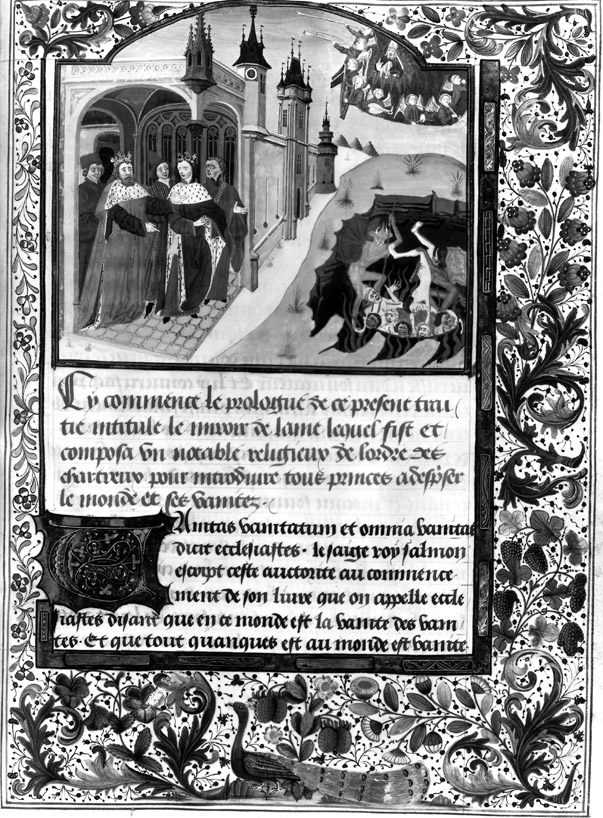 Cy commence le prologue de ce present trai
tie intitule le miroir de lame lequel fist et
composa vn notable religieux de lordre des
chartreux pour introduire tous princes a despiser
le monde et ses vanitez.
Vanitas vanitatum et omnia vanitas
dicit ecclesiastes. le saige roy salmon
escript ceste auctorite au commence
ment de son liure que on appelle eccle
siastes disant que en ce monde est la vanite des vani
tes. Et que tout quanques est au monde est vanite